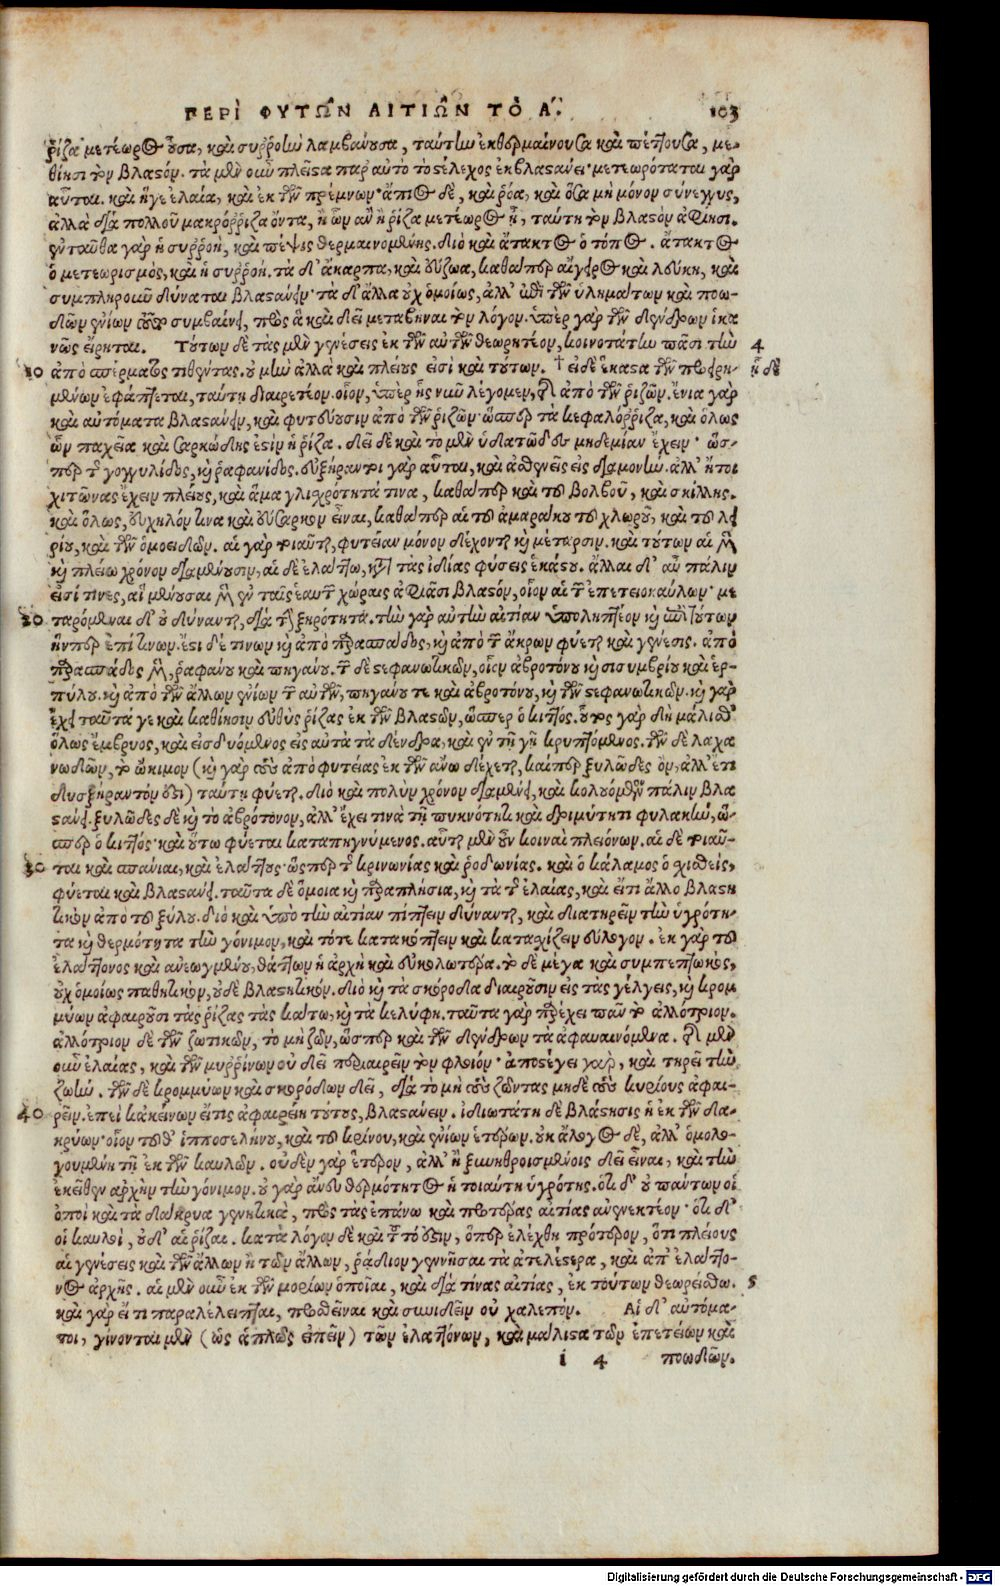 ΠΕΡΙ ΦΥΤΩΝ ΑΙΤΙΩΝ ΤΟ Α. 103
ῥίζα μετέωρος οὖσα, καὶ συῤῥοὴν λαμβάνουσα, ταύτην ἐκθερμαίνουσα καὶ πέττουσα, με-
θίησι τὸν βλαστόν. τὰ μὲν οὖν πλεῖστα παρ' αὐτὸ τὸ στέλεχος ἐκβλαστάνει· μετεωρόταται γὰρ
αὗται. καὶ ἥ γε ἐλαία, καὶ ἐκ τῶν πρέμνων· ἄπιος δὲ, καὶ ῥόα, καὶ ὅσα μὴ μόνον σύνεγγυς,
ἀλλὰ διὰ πολλοῦ μακρόῤῥιζα ὄντα, ᾗ ὧν ἂν ἡ ῥίζα μετέωρος ᾖ, ταύτῃ τὸν βλαστὸν ἀφίησι.
ἐνταῦθα γὰρ ἡ συῤῥοὴ, καὶ πέψις θερμαινομένης. διὸ καὶ ἄτακτος ὁ τόπος. ἄτακτος
ὁ μετεωρισμὸς, καὶ ἡ συῤῥοή. τὰ δ' ἄκαρπα, καὶ εὔζωα, καθάπερ αἴγειρος καὶ λεύκη, καὶ
συμπληροῦν δύναται βλαστάνειν· τὰ δ' ἄλλα οὐχ ὁμοίως, ἀλλ' ἐπὶ τῶν ὑλημάτων καὶ ποω-
δῶν ἐνίων συμβαίνει, πρὸς ἃ καὶ δεῖ μεταβῆναι τὸν λόγον. ὑπὲρ γὰρ τῶν δένδρων ἱκα
νῶς εἴρηται. Τούτων δὲ τὰς μὲν γενέσεις ἐκ τῶν αὐτῶν θεωρητέον, κοινοτάτην πᾶσι τὴν 4
10 ἀπὸ σπέρματος τιθέντας. οὐ μὴν ἀλλὰ καὶ πλείους εἰσὶ καὶ τούτων. † εἰ δὲ ἕκαστα τῶν προειρη- ᾗ δὲ
μένων ἐφάπτεται, ταύτῃ διαιρετέον. οἷον, ὑπὲρ ἧς νῦν λέγομεν, τῆς ἀπὸ τῶν ῥιζῶν. ἔνια γὰρ
καὶ αὐτόματα βλαστάνειν, καὶ φυτεύουσιν ἀπὸ τῶν ῥιζῶν· ὥσπερ τὰ κεφαλόῤῥιζα, καὶ ὅλως
ὧν παχεῖα καὶ σαρκώδης ἐστὶν ἡ ῥίζα. δεῖ δὲ καὶ τὸ μὲν ὑδατῶδες μηδεμίαν ἔχειν· ὥσ-
περ τῆς γογγυλίδος, καὶ ῥαφανίδος. εὐξήραντοι γὰρ αὗται, καὶ ἀσθενεῖς εἰς διαμονήν. ἀλλ' ἤτοι
χιτῶνας ἔχειν πλείους, καὶ ἅμα γλισχρότητά τινα, καθάπερ καὶ τοῦ βολβοῦ, καὶ σκίλλης.
καὶ ὅλως, εὐχηλόν τινα καὶ εὔσαρκον εἶναι, καθάπερ αἱ τοῦ ἀμαράκου τοῦ χλωροῦ, καὶ τοῦ λει
ρίου, καὶ τῶν ὁμοειδῶν. αἱ γὰρ τοιαῦται, φυτείαν μόνον δέχονται καὶ μέταρσιν. καὶ τούτων αἱ μὲν
καὶ πλείω χρόνον διαμένουσιν, αἱ δὲ ἐλάττω, κατὰ τὰς ἰδίας φύσεις ἑκάστου. ἄλλαι δ' αὖ πάλιν
εἰσί τινες, αἳ μένουσαι μὲν ἐν ταῖς ἑαυτῶν χώραις ἀφιᾶσι βλαστόν, οἷον αἱ τῶν ἐπετειοκαύλων· με
20 ταρόμεναι δ' οὐ δύνανται, διὰ τὴν ξηρότητα. τὴν γὰρ αὐτὴν αἰτίαν ὑποληπτέον καὶ ἐπὶ τούτων
ἥνπερ ἐπί τινων. ἔστι δέ τινων καὶ ἀπὸ παρασπάδος, καὶ ἀπὸ τῶν ἄκρων φύεται καὶ γένεσις. ἀπὸ
παρασπάδος μὲν, ῥαφάνου καὶ πηγάνου. τῶν δὲ στεφανωτικῶν, οἷον ἀβροτόνου καὶ σισυμβρίου καὶ ἑρ-
πύλου. καὶ ἀπὸ τῶν ἄλλων ἐνίων τῶν αὐτῶν, πηγάνου τε καὶ ἀβροτόνου, καὶ τῶν στεφανωτικῶν. καὶ γὰρ
ἔχει ταῦτά γε καὶ καθίησιν εὐθὺς ῥίζας ἐκ τῶν βλαστῶν, ὥσπερ ὁ κιττός. οὗτος γὰρ δὴ μάλισθ'
ὅλως ἔμβρυος, καὶ εἰσδυόμενος εἰς αὐτὰ τὰ δένδρα, καὶ ἐν τῇ γῇ κρυπτόμενος. τῶν δὲ λαχα
νωδῶν, τὸ ὤκιμον (καὶ γὰρ τοῦτο ἀπὸ φυτείας ἐκ τῶν ἄνω δέχεται, καίπερ ξυλῶδες ὂν, ἀλλ' ἔτι
δυσξήραντόν ἐστι) ταύτῃ φύεται. διὸ καὶ πολὺν χρόνον διαμένει, καὶ κολουόμενον πάλιν βλα
στάνει. ξυλῶδες δὲ καὶ τὸ ἀβρότονον, ἀλλ' ἔχει τινὰ τῇ πυκνότητι καὶ δριμύτητι φυλακήν, ὥ-
σπερ ὁ κιττός· καὶ οὕτω φύεται καταπηγνύμενος. αὗται μὲν οὖν κοιναὶ πλειόνων. αἱ δὲ τοιαῦ-
30 ται καὶ σπάνιαι, καὶ ἐλάττους· ὥσπερ τῆς κρινωνίας καὶ ῥοδωνίας. καὶ ὁ κάλαμος ὁ χισθεὶς,
φύεται καὶ βλαστάνει. ταῦτα δὲ ὅμοια καὶ παραπλήσια, καὶ τὰ τῆς ἐλαίας, καὶ εἴ τι ἄλλο βλαστη
τικὸν ἀπὸ τοῦ ξύλου. διὸ καὶ ὑπὸ τὴν αἰτίαν πίπτειν δύνανται, καὶ διατηρεῖν τὴν ὑγρότη-
τα καὶ θερμότητα τὴν γόνιμον, καὶ τότε κατακόπτειν καὶ κατασχίζειν εὔλογον. ἐκ γὰρ τοῦ
ἐλάττονος καὶ ἀνεωγμένου, θᾶττων ἡ ἀρχὴ καὶ εὐκολωτέρα. τὸ δὲ μέγα καὶ συμπεπτωκὸς,
οὐχ ὁμοίως παθητικὸν, οὐδὲ βλαστητικόν. διὸ καὶ τὰ σκόροδα διαιροῦσιν εἰς τὰς γέλγεις, καὶ κρομ
μύων ἀφαιροῦσι τὰς ῥίζας τὰς κάτω, καὶ τὰ κελύφη. ταῦτα γὰρ παρέχει πᾶν τὸ ἀλλότριον.
ἀλλότριον δὲ τῶν ζωτικῶν, τὸ μὴ ζῶν, ὥσπερ καὶ τῶν δένδρων τὰ ἀφαυαινόμενα. τῆς μὲν
οὖν ἐλαίας, καὶ τῶν μυῤῥίνων οὐ δεῖ περιαιρεῖν τὸν φλοιόν· ἀποστέγει γὰρ, καὶ τηρεῖ τὴν
ζωήν. τῶν δὲ κρομμύων καὶ σκορόδων δεῖ, διὰ τὸ μὴ τοὺς ζῶντας μηδὲ τοὺς κυρίους ἀφαι-
40 ρεῖν. ἐπεὶ κἀκείνων εἴ τις ἀφαιρείη τούτους, βλαστάνειν. ἰδιωτάτη δὲ βλάστησις ἡ ἐκ τῶν δα-
κρύων· οἷον τοῦ θ' ἱπποσελίνου, καὶ τοῦ κρίνου, καὶ ἐνίων ἑτέρων. οὐκ ἄλογος δὲ, ἀλλ' ὁμολο-
γουμένη τῇ ἐκ τῶν καυλῶν. οὐδὲν γὰρ ἕτερον, ἀλλ' ἢ ξυνηθροισμένοις δεῖ εἶναι, καὶ τὴν
ἐκεῖθεν ἀρχὴν τὴν γόνιμον. οὐ γὰρ ἄνευ θερμότητος ἡ τοιαύτη ὑγρότης. ὅτι δ' οὐ πάντων οἱ
ὀποὶ καὶ τὰ δάκρυα γεννητικὰ, πρὸς τὰς ἐπάνω καὶ προτέρας αἰτίας ἀνενεκτέον· ὅτι δ'
οἱ καυλοὶ, οὐδ' αἱ ῥίζαι. κατὰ λόγον δὲ καὶ τοῦτό ἐστιν, ὅπερ ἐλέχθη πρότερον, ὅτι πλείους
αἱ γενέσεις καὶ τῶν ἄλλων ἢ τῶν ἄλλων, ῥᾴδιον γεννῆσαι τὰ ἀτελέστερα, καὶ ἀπ' ἐλάττο-
νος ἀρχῆς. αἱ μὲν οὖν ἐκ τῶν μορίων ὁποῖαι, καὶ διὰ τίνας αἰτίας, ἐκ τούτων θεωρείσθω. 5
καὶ γὰρ εἴ τι παραλέλειπται, προσθεῖναι καὶ συνιδεῖν οὐ χαλεπόν. Αἱ δ' αὐτόμα-
τοι, γίνονται μὲν (ὡς ἁπλῶς εἰπεῖν) τῶν ἐλαττόνων, καὶ μάλιστα τῶν ἐπετείων καὶ
i 4 ποωδῶν.
Digitalisierung gefördert durch die Deutsche Forschungsgemeinschaft - DFG